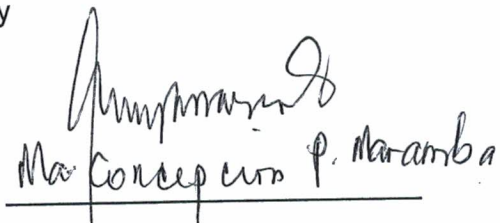 y
Ma. Concepcion P. Maramba